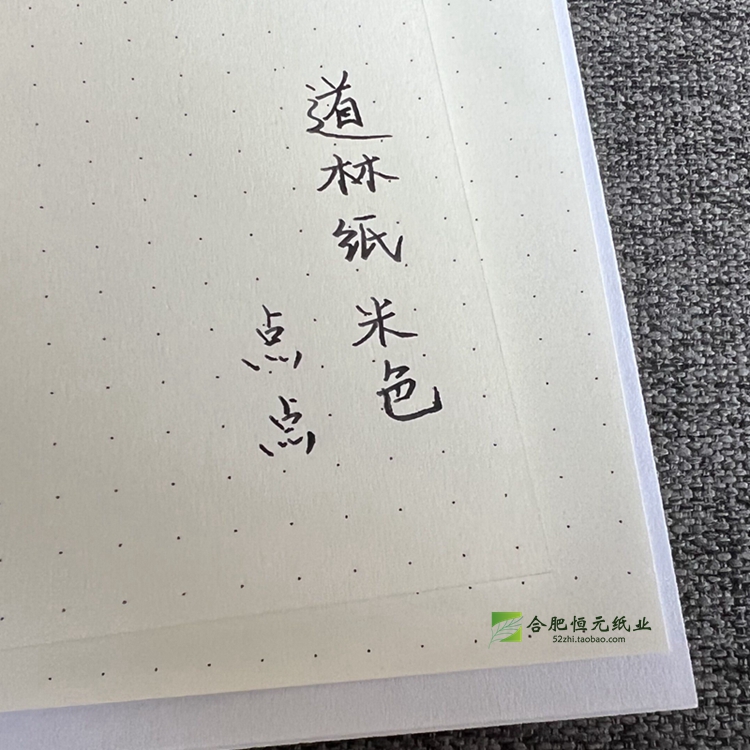 道林纸 米色
点点
合肥恒元纸业
52zhi.taobao.com